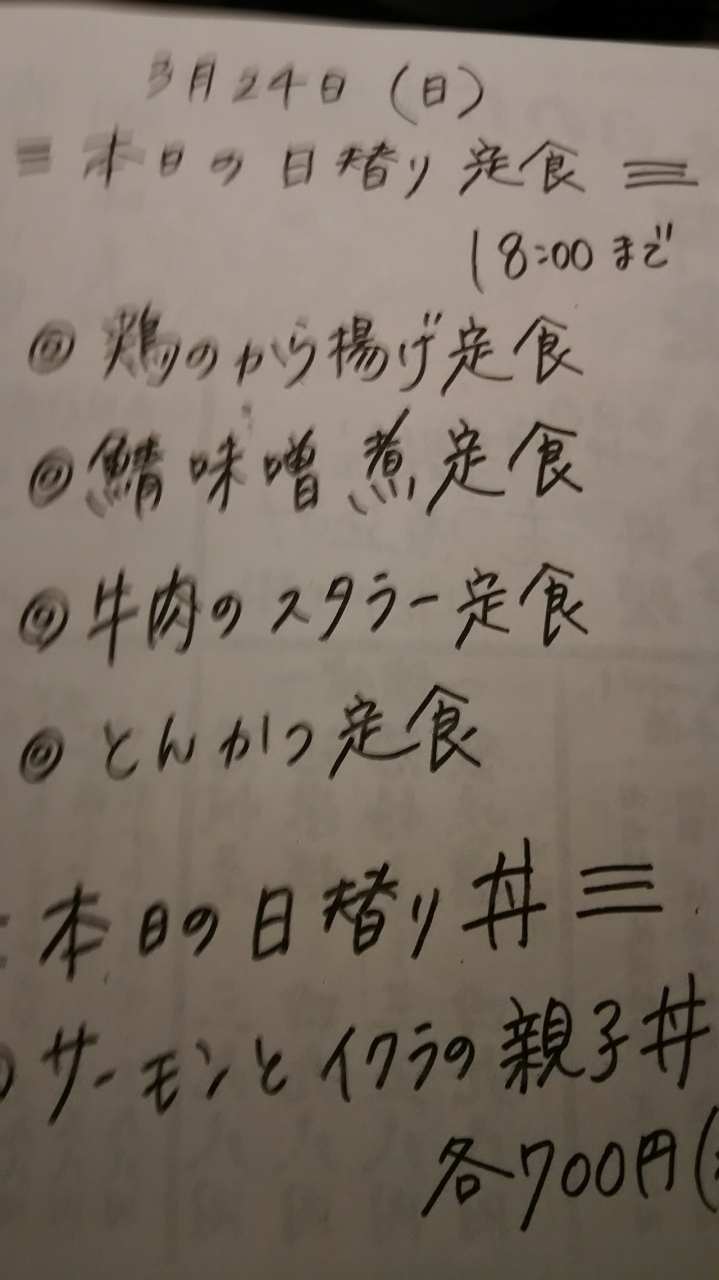 3月24日（日）
≡ 本日の日替り定食 ≡
18:00まで
◎ 鶏のから揚げ定食
◎ 鯖味噌煮定食
◎ 牛肉のスタラー定食
◎ とんかつ定食
本日の日替り丼 ≡
サーモンとイクラの親子丼
各700円(